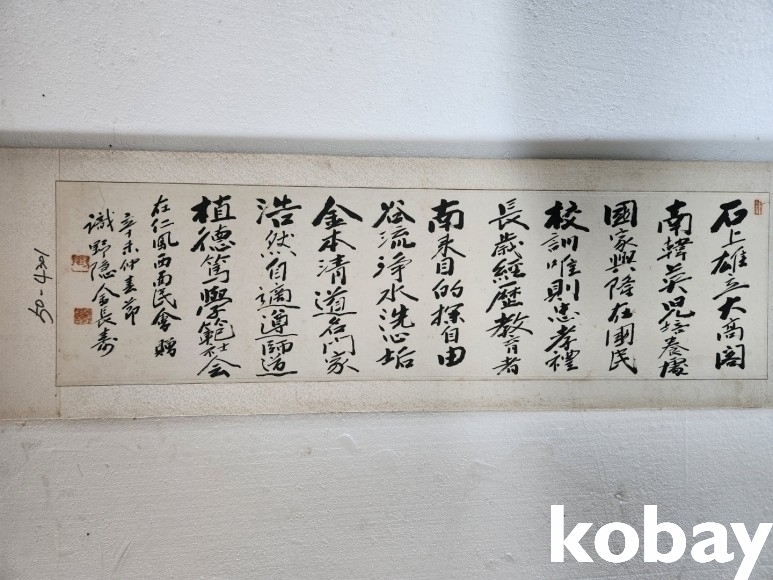 石上雄立大高閣
南韓英児培養處
國家興隆在國民
校訓唯則忠孝禮
長歲經歷教育者
南来目的探自由
谷流浄水洗心垢
金本清道名門家
浩然自適遵師道
植德篤學範士会
在仁風西面民會贈
辛未仲春節
識野隐金長壽
50-4201
kobay